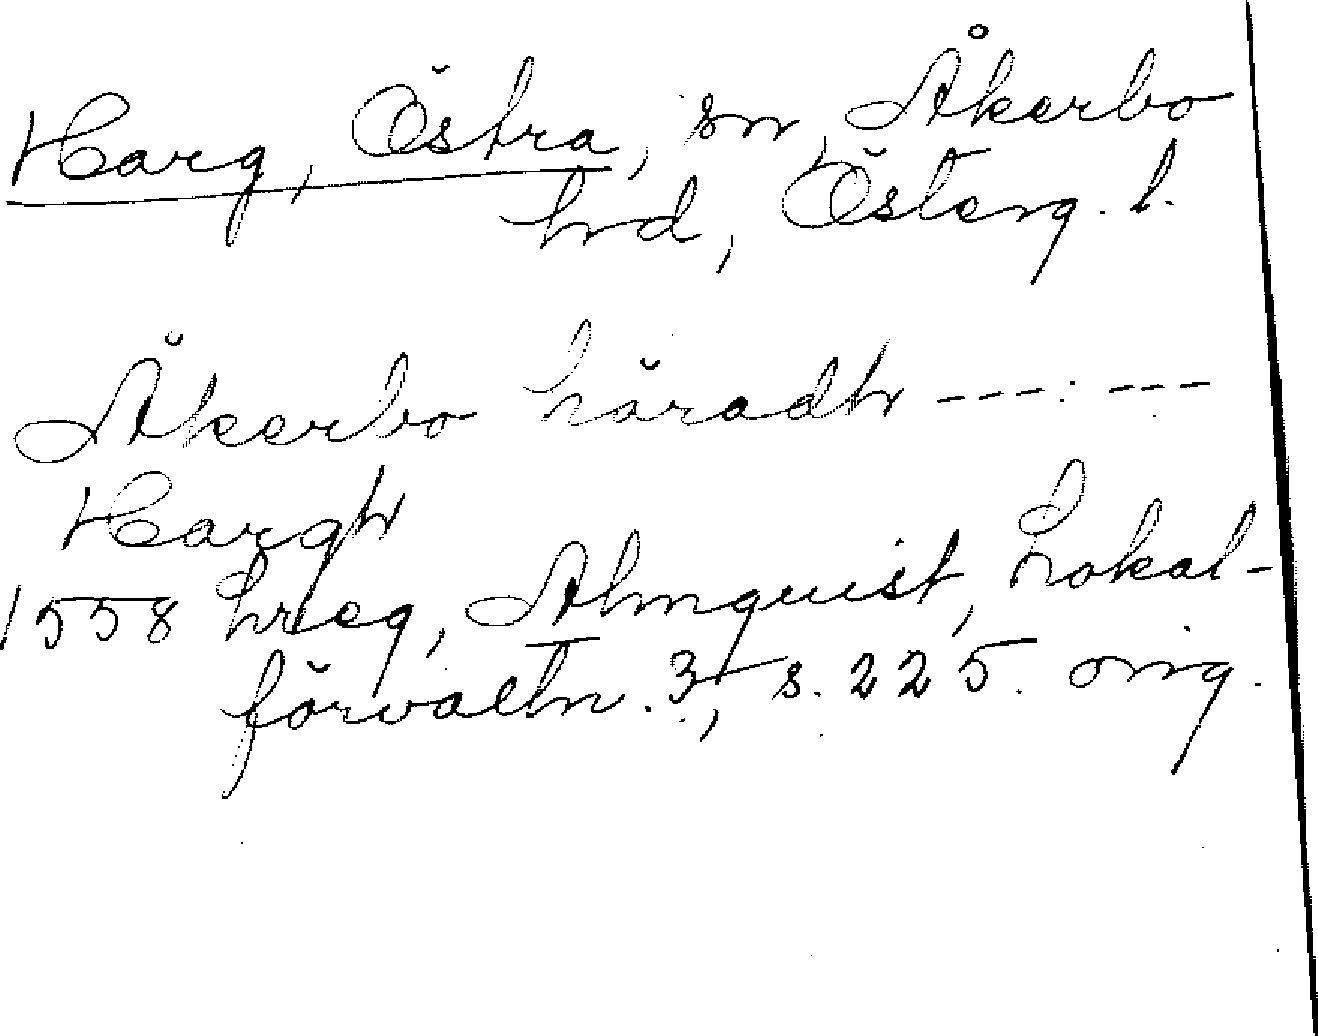 Harg, Östra, sn, Åkerbo
hrd, Österg. l.
Åkerbo häradh --- ---
Hargh
1558 hreg, Almquist, Lokal-
förvaltn. 3, s. 225. orig.